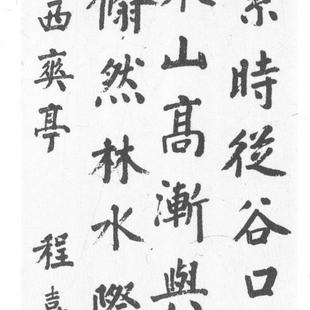 時從谷口
山高漸與
然林水際
西爽亭 程